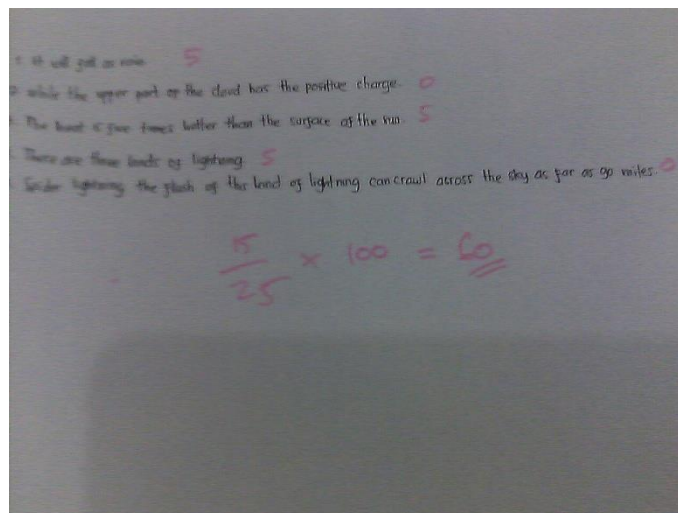 it will fall as rain 5
while the upper part of the cloud has the positive charge. 0
The heat is five times hotter than the surface of the sun. 5
There are three kinds of lightning 5
Spider lightning the flash of this kind of lightning can crawl across the sky as far as 90 miles. 0
15
25
× 100 = 60